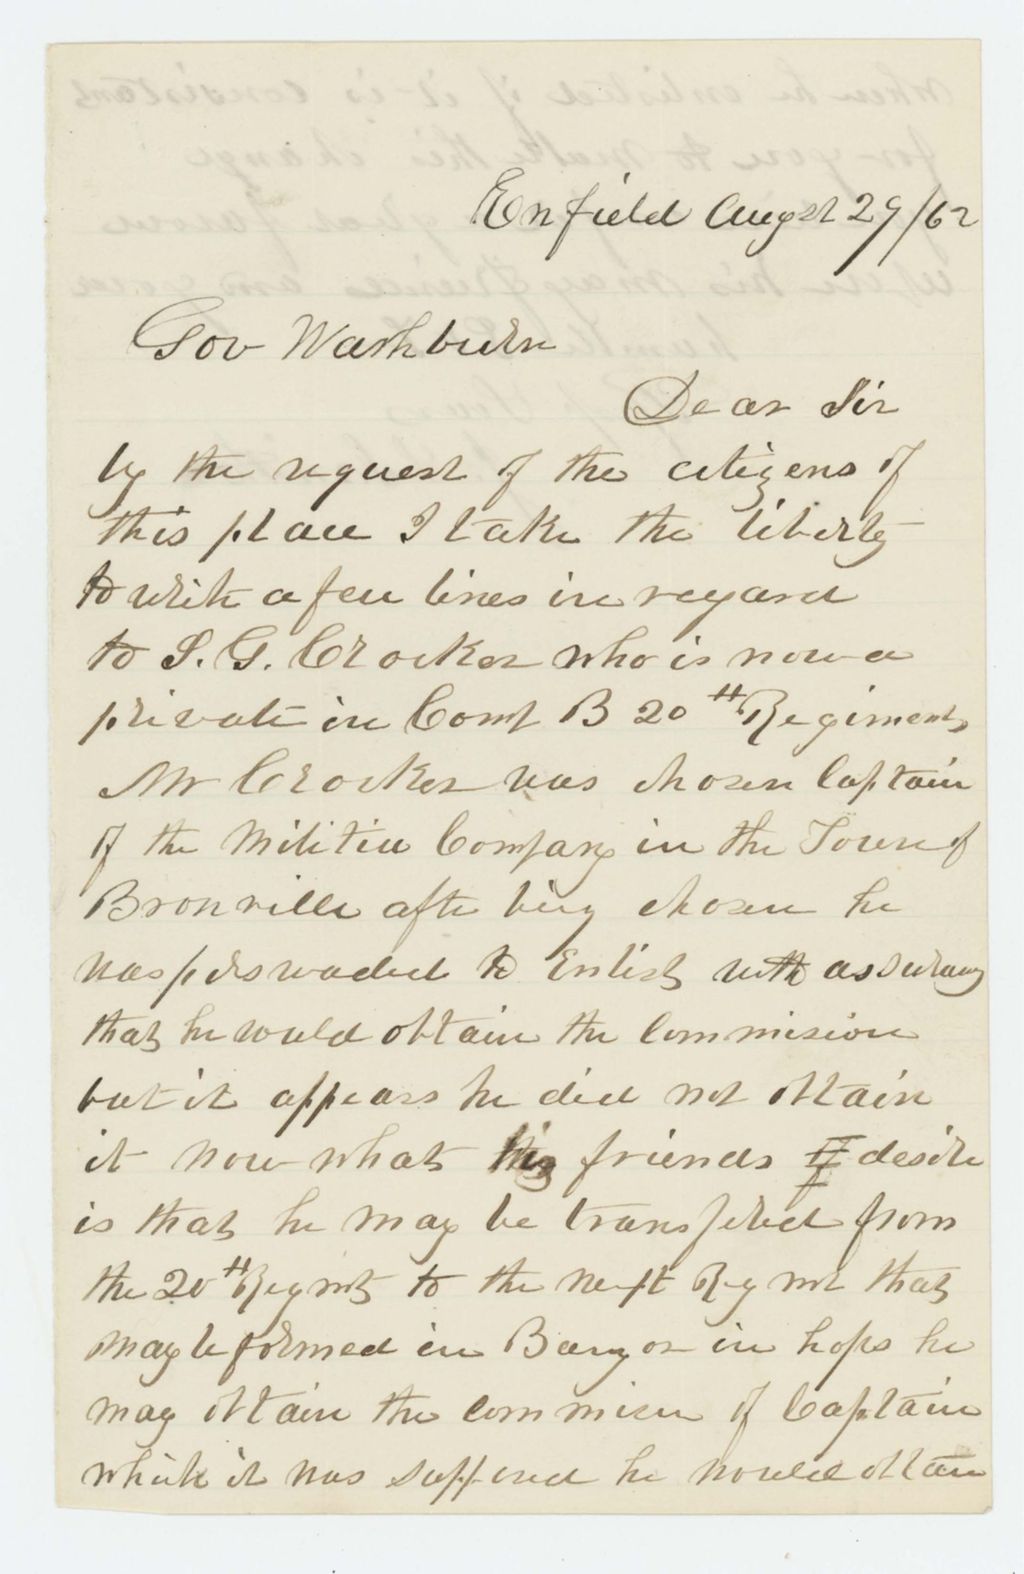 Enfield Augst 29/62
Gov Washburn
Dear Sir
by the request of the citizens of
this place I take the liberty
to write a few lines in regard
to S. G. Crocker who is now a
private in Comp B 20th Regiment
Mr Crocker was chosen Captain
of the Militia Company in the Town of
Bronville after being chosen he
was perswaded to Enlist with assurancy
that he would obtain the Commision
but it appears he did not obtain
it now what his friends desire
is that he may be transfered from
the 20th Regmt to the next Regmt that
may be formed in Bangor in hops he
may obtain the commision of Captain
which it was supposed he would obtain